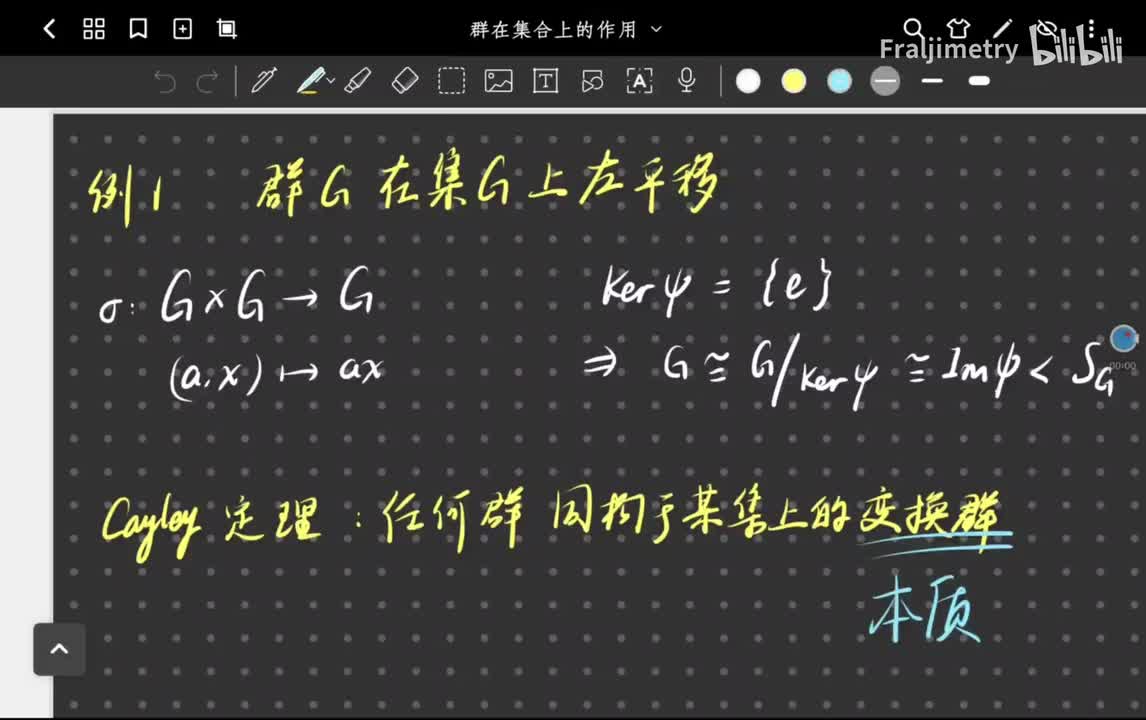 群在集合上的作用
Fraljimetry bilibili
例1 群G在集G上左平移
σ: G×G→G
(a,x)↦ax
Ker ψ = {e}
⇒ G ≅ G/Ker ψ ≅ Im ψ < S_G
00:00
Cayley定理:任何群同构于某集上的变换群
本质